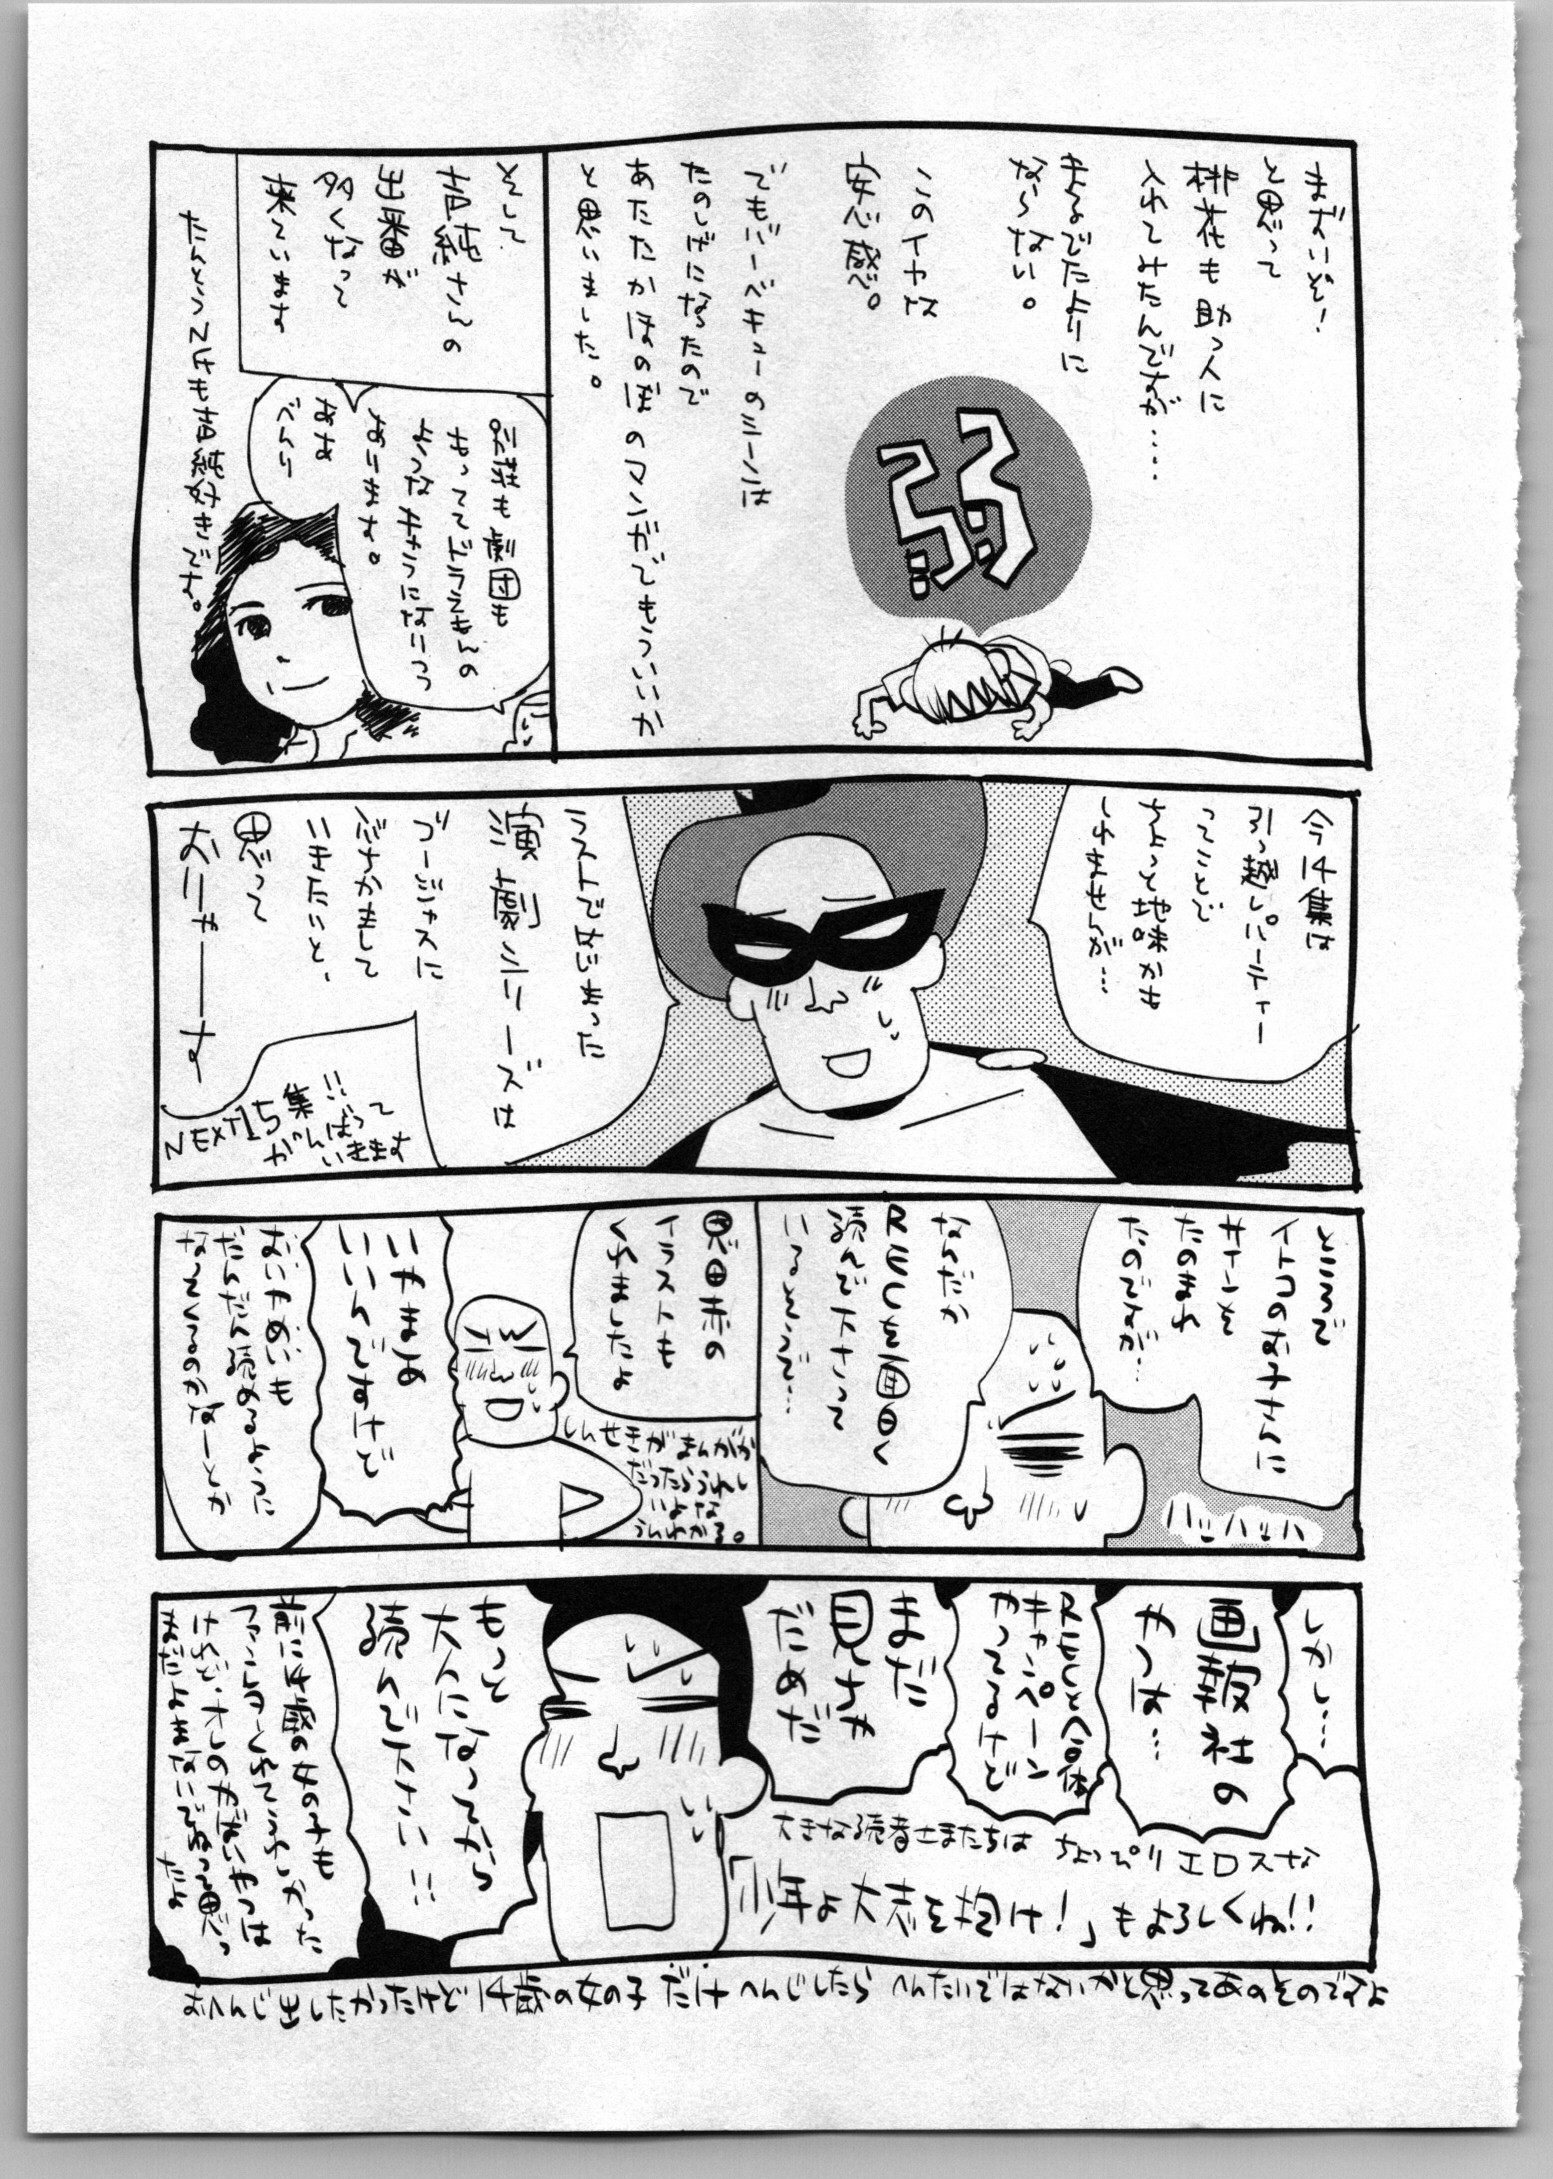 まずいぞ!
と思って
桃花も助っ人に
入れてみたんですが……
まるでたよりに
ならない。
このイヤな
安心感。
でもバーベキューのシーンは
たのしげになったので
あたたかほのぼのマンガでもういいか
と思いました。
そして
さんの
出番が
多くなって
来ています
劇団も
なりますな。
好きです。
今14集は
引っ越しパーティー
ってことで
ちょっと地味かも
しれませんが…
ラストではじまった
演劇シリーズは
ゴージャスに
ぶちかまして
いきたいと、
思って
おりゃーーす
NEXT15集!!
がんばって
いきます
ところで
イトコのお子さんに
サインを
たのまれ
たのですが…
なんだか
RECを面白く
読んで下さって
いるそうで…
ハッハッハ
イラストも
くれましたよ
しんせきがまんがか
だったらうれし
いよな
うんわかる。
いやまあ
いいんですけど
おいやめいも
だんだん読めるように
なってくるのかなーとか
しかし…
画報社の
やつは…
RECと合体
キャンペーン
やってるけど
まだ
見ちゃ
だめだ
大きな読者さまたちは ちょっぴりエロスな
「少年よ大志を抱け!」もよろしくね!!
もっと
大人になってから
読んで下さい!!
前に14歳の女の子も
ファンレターくれてうれしかった
おへんじ出したかったけど14歳の女の子だけへんじしたら へんたいではないかと思ってあのそのですよ